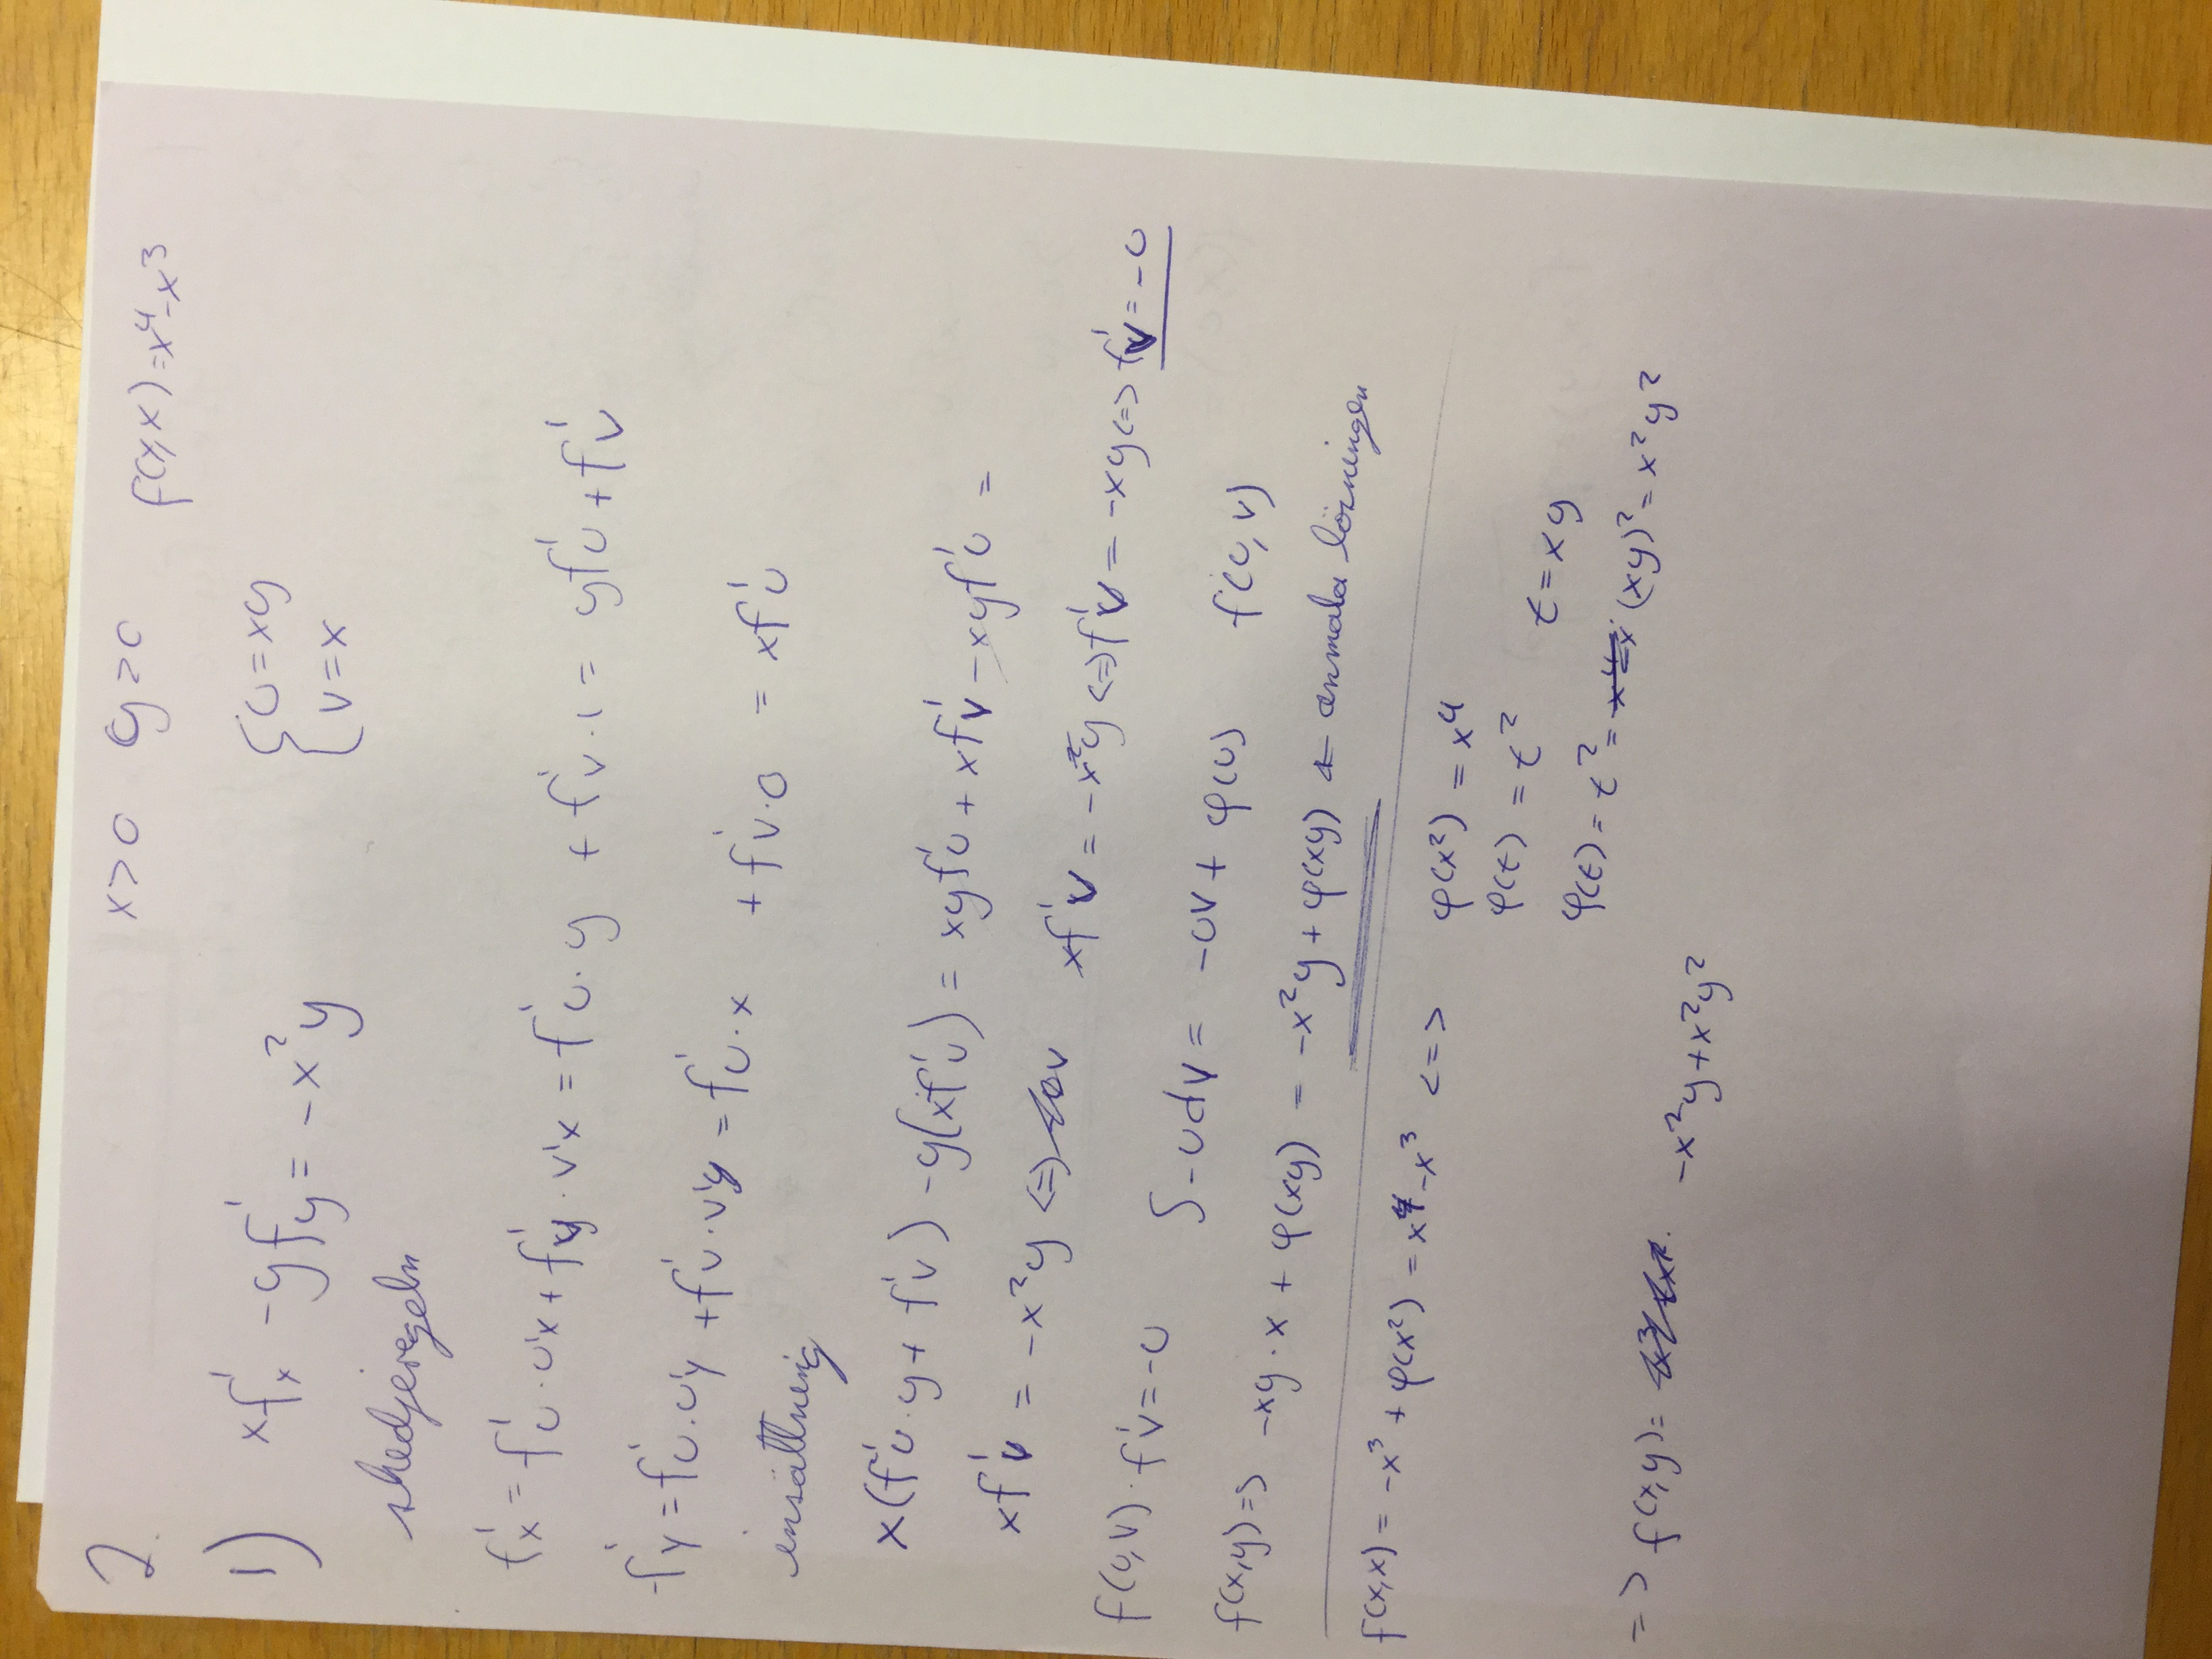 2. x>0 y>0 f(x,x)=x⁴-x³
1) xf'x -yf'y = -x²y {u=xy
v=x
kedjeregeln
f'x = f'u·u'x + f'v·v'x = f'u·y + f'v·1 = yf'u + f'v
f'y = f'u·u'y + f'v·v'y = f'u·x + f'v·0 = xf'u
insättning
x(f'u·y + f'v) -y(xf'u) = xyf'u + xf'v - xyf'u =
xf'v = -x²y <=> xf'v = -x²y <=> f'v = -xy <=> f'v = -u
f(u,v) f'v = -u ∫-udv = -uv + φ(u) f(u,v)
f(x,y) => -xy·x + φ(xy) = -x²y + φ(xy) ← lösningen
f(x,x) = -x³ + φ(x²) = x⁴-x³ <=> φ(x²) = x⁴
φ(t) = t² t=xy
φ(t) = t² = (xy)² = x²y²
=> f(x,y) = -x²y+x²y²